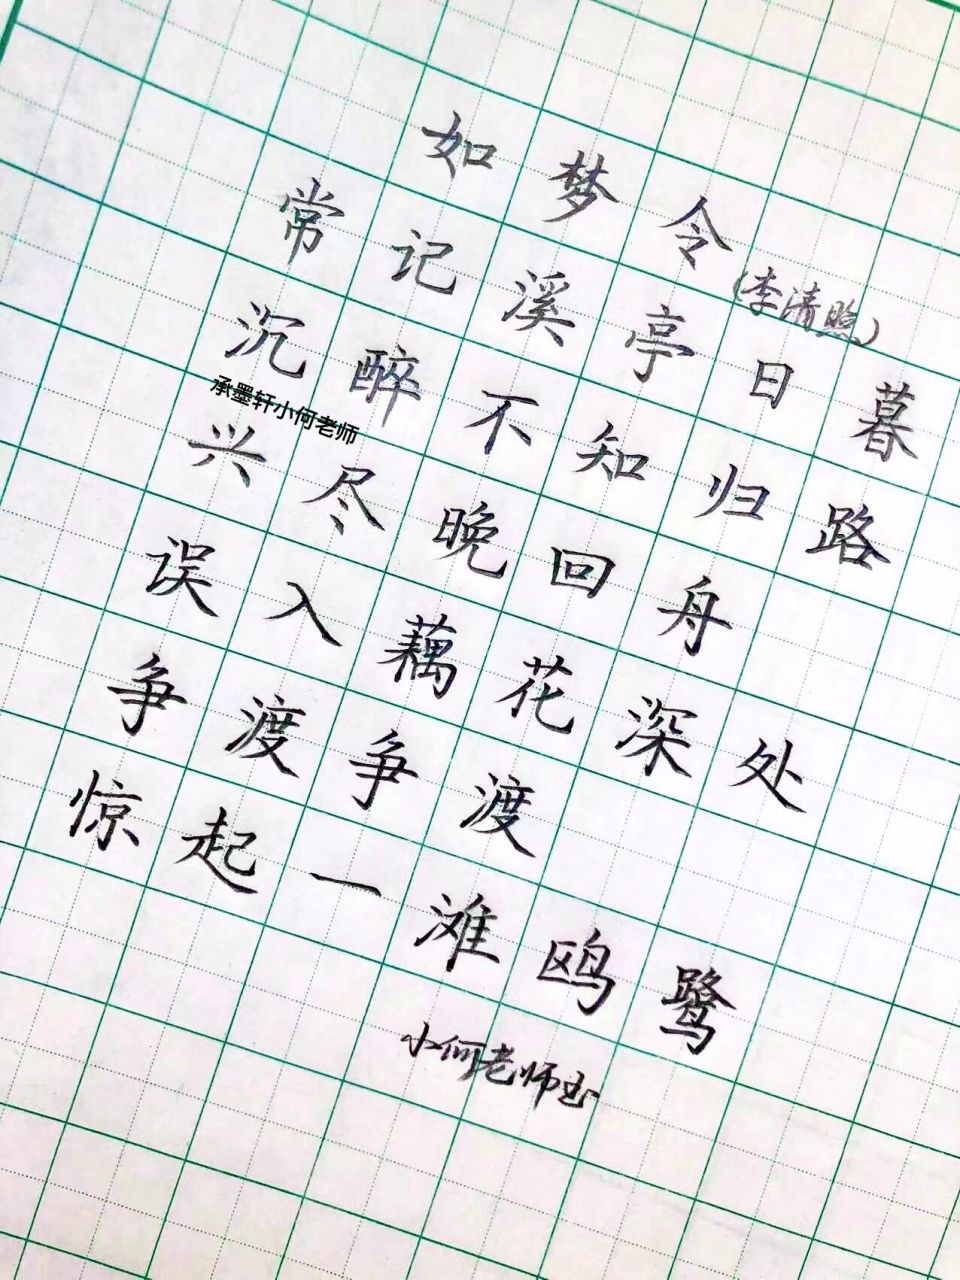 如梦令
(李清照)
常记溪亭日暮
沉醉不知归路
承墨轩小何老师
兴尽晚回舟
误入藕花深处
争渡争渡
惊起一滩鸥鹭
小何老师书